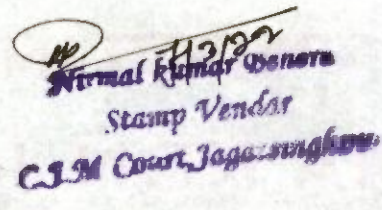 7/3/22
Nirmal kumar Behera
Stamp Vendor
C.J.M Court, Jagatsinghpur